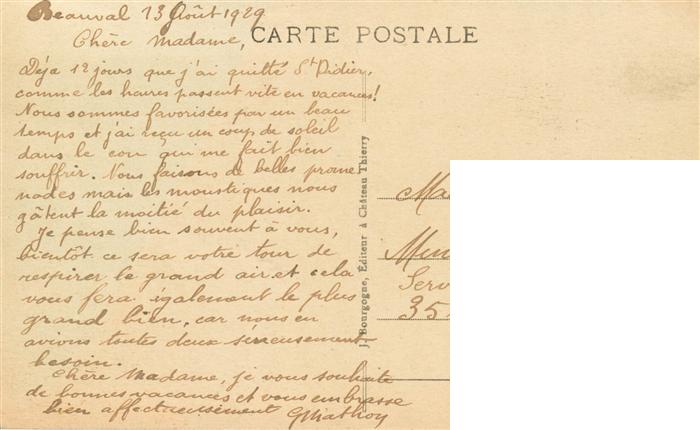 Beauval 13 Août 1929
Chère Madame,
CARTE POSTALE
Déjà 12 jours que j'ai quitté St Didier,
comme les heures passent vite en vacances!
Nous sommes favorisées par un beau
temps et j'ai reçu un coup de soleil
dans le cou qui me fait bien
souffrir. Nous faisons de belles prome
nades mais les moustiques nous
gâtent la moitié du plaisir.
Je pense bien souvent à vous,
bientôt ce sera votre tour de
respirer le grand air et cela
vous fera également le plus
grand bien, car nous en
avions toutes deux sérieusement
besoin.
Chère Madame, je vous souhaite
de bonnes vacances et vous embrasse
bien affectueusement
J. Bourgogne, Éditeur à Château Thierry
Ma
Serv
35